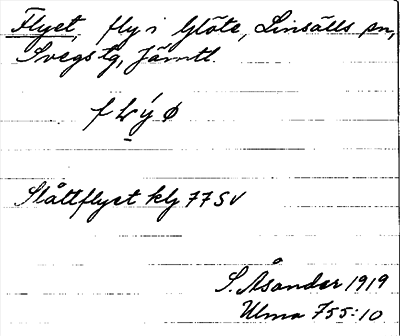 Flyet, fly i Glöte, Linsälls sn,
Svegs tg, Jämtl.
flẏ́ø
Slåttflyet klj 77 SV
S. Åsander 1919
Ulma 755:10